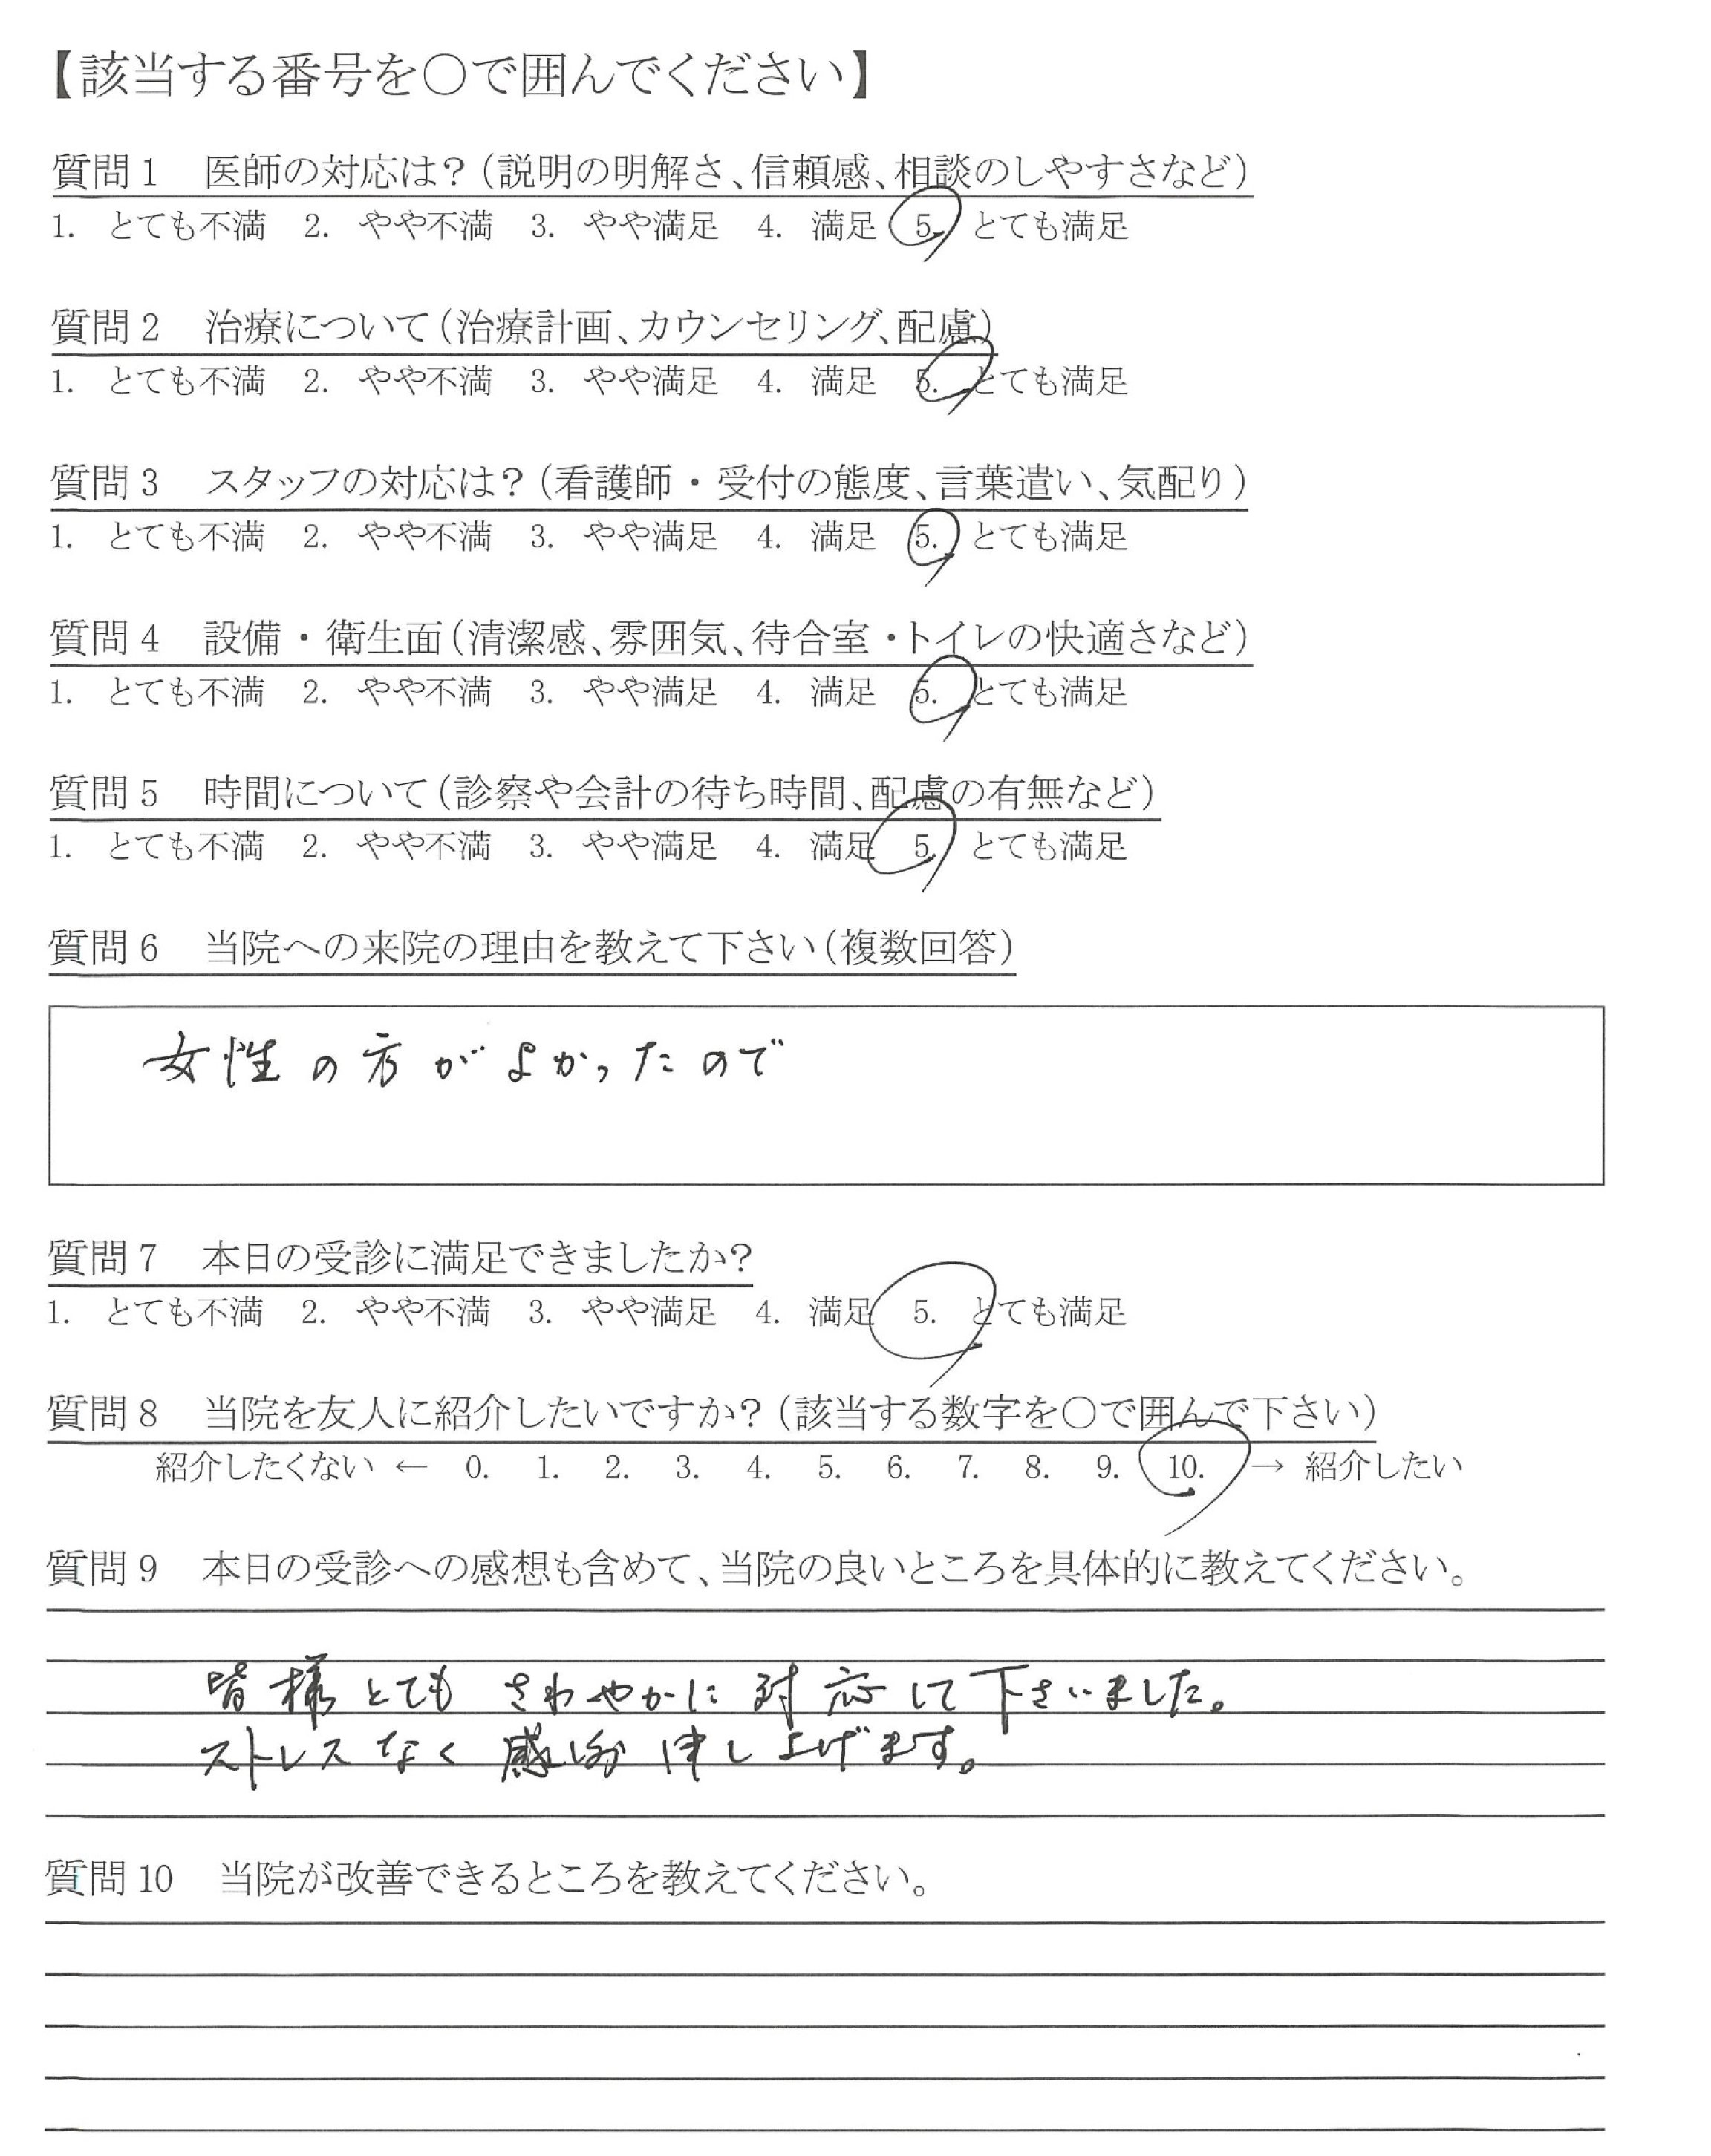 【該当する番号を○で囲んでください】
質問1　医師の対応は？（説明の明解さ、信頼感、相談のしやすさなど）
1.　とても不満　2.　やや不満　3.　やや満足　4.　満足　5.　とても満足
質問2　治療について（治療計画、カウンセリング、配慮）
1.　とても不満　2.　やや不満　3.　やや満足　4.　満足　5.　とても満足
質問3　スタッフの対応は？（看護師・受付の態度、言葉遣い、気配り）
1.　とても不満　2.　やや不満　3.　やや満足　4.　満足　5.　とても満足
質問4　設備・衛生面（清潔感、雰囲気、待合室・トイレの快適さなど）
1.　とても不満　2.　やや不満　3.　やや満足　4.　満足　5.　とても満足
質問5　時間について（診察や会計の待ち時間、配慮の有無など）
1.　とても不満　2.　やや不満　3.　やや満足　4.　満足　5.　とても満足
質問6　当院への来院の理由を教えて下さい（複数回答）
女性の方がよかったので
質問7　本日の受診に満足できましたか？
1.　とても不満　2.　やや不満　3.　やや満足　4.　満足　5.　とても満足
質問8　当院を友人に紹介したいですか？（該当する数字を○で囲んで下さい）
紹介したくない ← 0.　1.　2.　3.　4.　5.　6.　7.　8.　9.　10.　→ 紹介したい
質問9　本日の受診への感想も含めて、当院の良いところを具体的に教えてください。
皆様とても さわやかに 対応して下さいました。
ストレスなく 感謝申し上げます。
質問10　当院が改善できるところを教えてください。